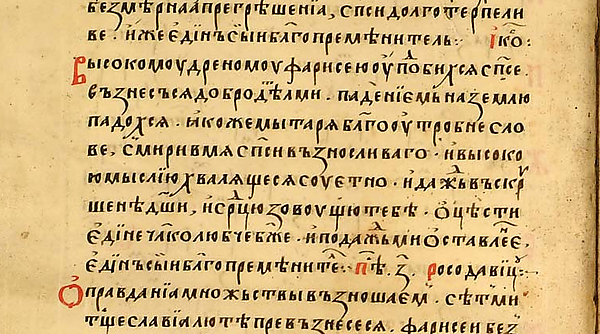 безмѣрнаа прегрѣшенїа, сп҃си долготерпели
ве · иже єдинъ сыи бл҃гопремѣнитель : іко҆:
Высокомоудреномоу фарисею оуподобихся сп҃се
възнесъся добродѣлми · паденїємь на землю
падохся · якоже мытаря бл҃гооутробне сло
ве, смиривмя сп҃си възносливаго · и высоко
юмыслїю хвалящеся соуєтно · и даждь въ скр
шенѣ дш҃и, и ср҃цю зовоущю тебѣ · оцѣсти
єдине чл҃колюбче бж҃е · и подаждь ми оставленїє,
єдинъ сыи бл҃гопремѣните · пѣ · з · росодавиц:
Оправданїа множьствы възношаєм · сѣтми
тщеславїа лютѣ превъзнесеся · фарисеи без